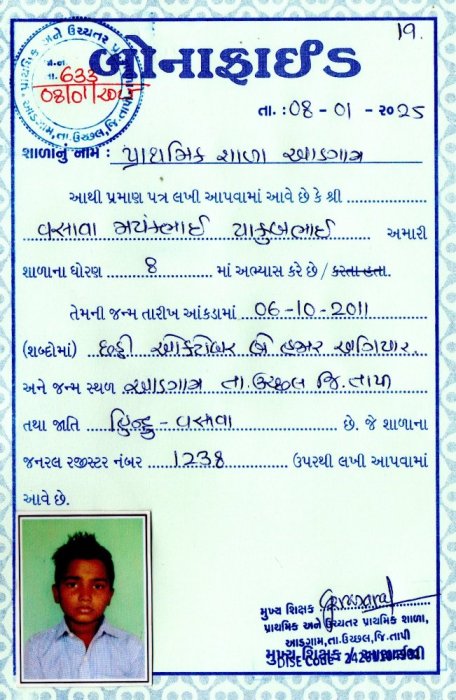 19.
પ્રાથમિક અને ઉચ્ચતર પ્રા
આડગામ, તા.ઉચ્છલ, જિ.તાપી
જા.નં.
તા.
633
08/01/20
બોનાફાઈડ
તા. :08-01-2025
શાળાનું નામ : પ્રાથમિક શાળા આડગામ
આથી પ્રમાણ પત્ર લખી આપવામાં આવે છે કે શ્રી
વસાવા મયંકભાઈ યાકુબભાઈ અમારી
શાળાના ધોરણ 8 માં અભ્યાસ કરે છે / કરતા હતા.
તેમની જન્મ તારીખ આંકડામાં 06-10-2011
(શબ્દોમાં) છઠ્ઠી ઓક્ટોબર બે હજાર અગિયાર
અને જન્મ સ્થળ આડગામ તા.ઉચ્છલ જિ.તાપી
તથા જાતિ હિન્દુ - વસાવા છે. જે શાળાના
જનરલ રજીસ્ટર નંબર 1238 ઉપરથી લખી આપવામાં
આવે છે.
મુખ્ય શિક્ષક
પ્રાથમિક અને ઉચ્ચતર પ્રાથમિક શાળા,
આડગામ,તા.ઉચ્છલ,જિ.તાપી
મુખ્ય શિક્ષક / આચાર્યશ્રી
DISE Code -